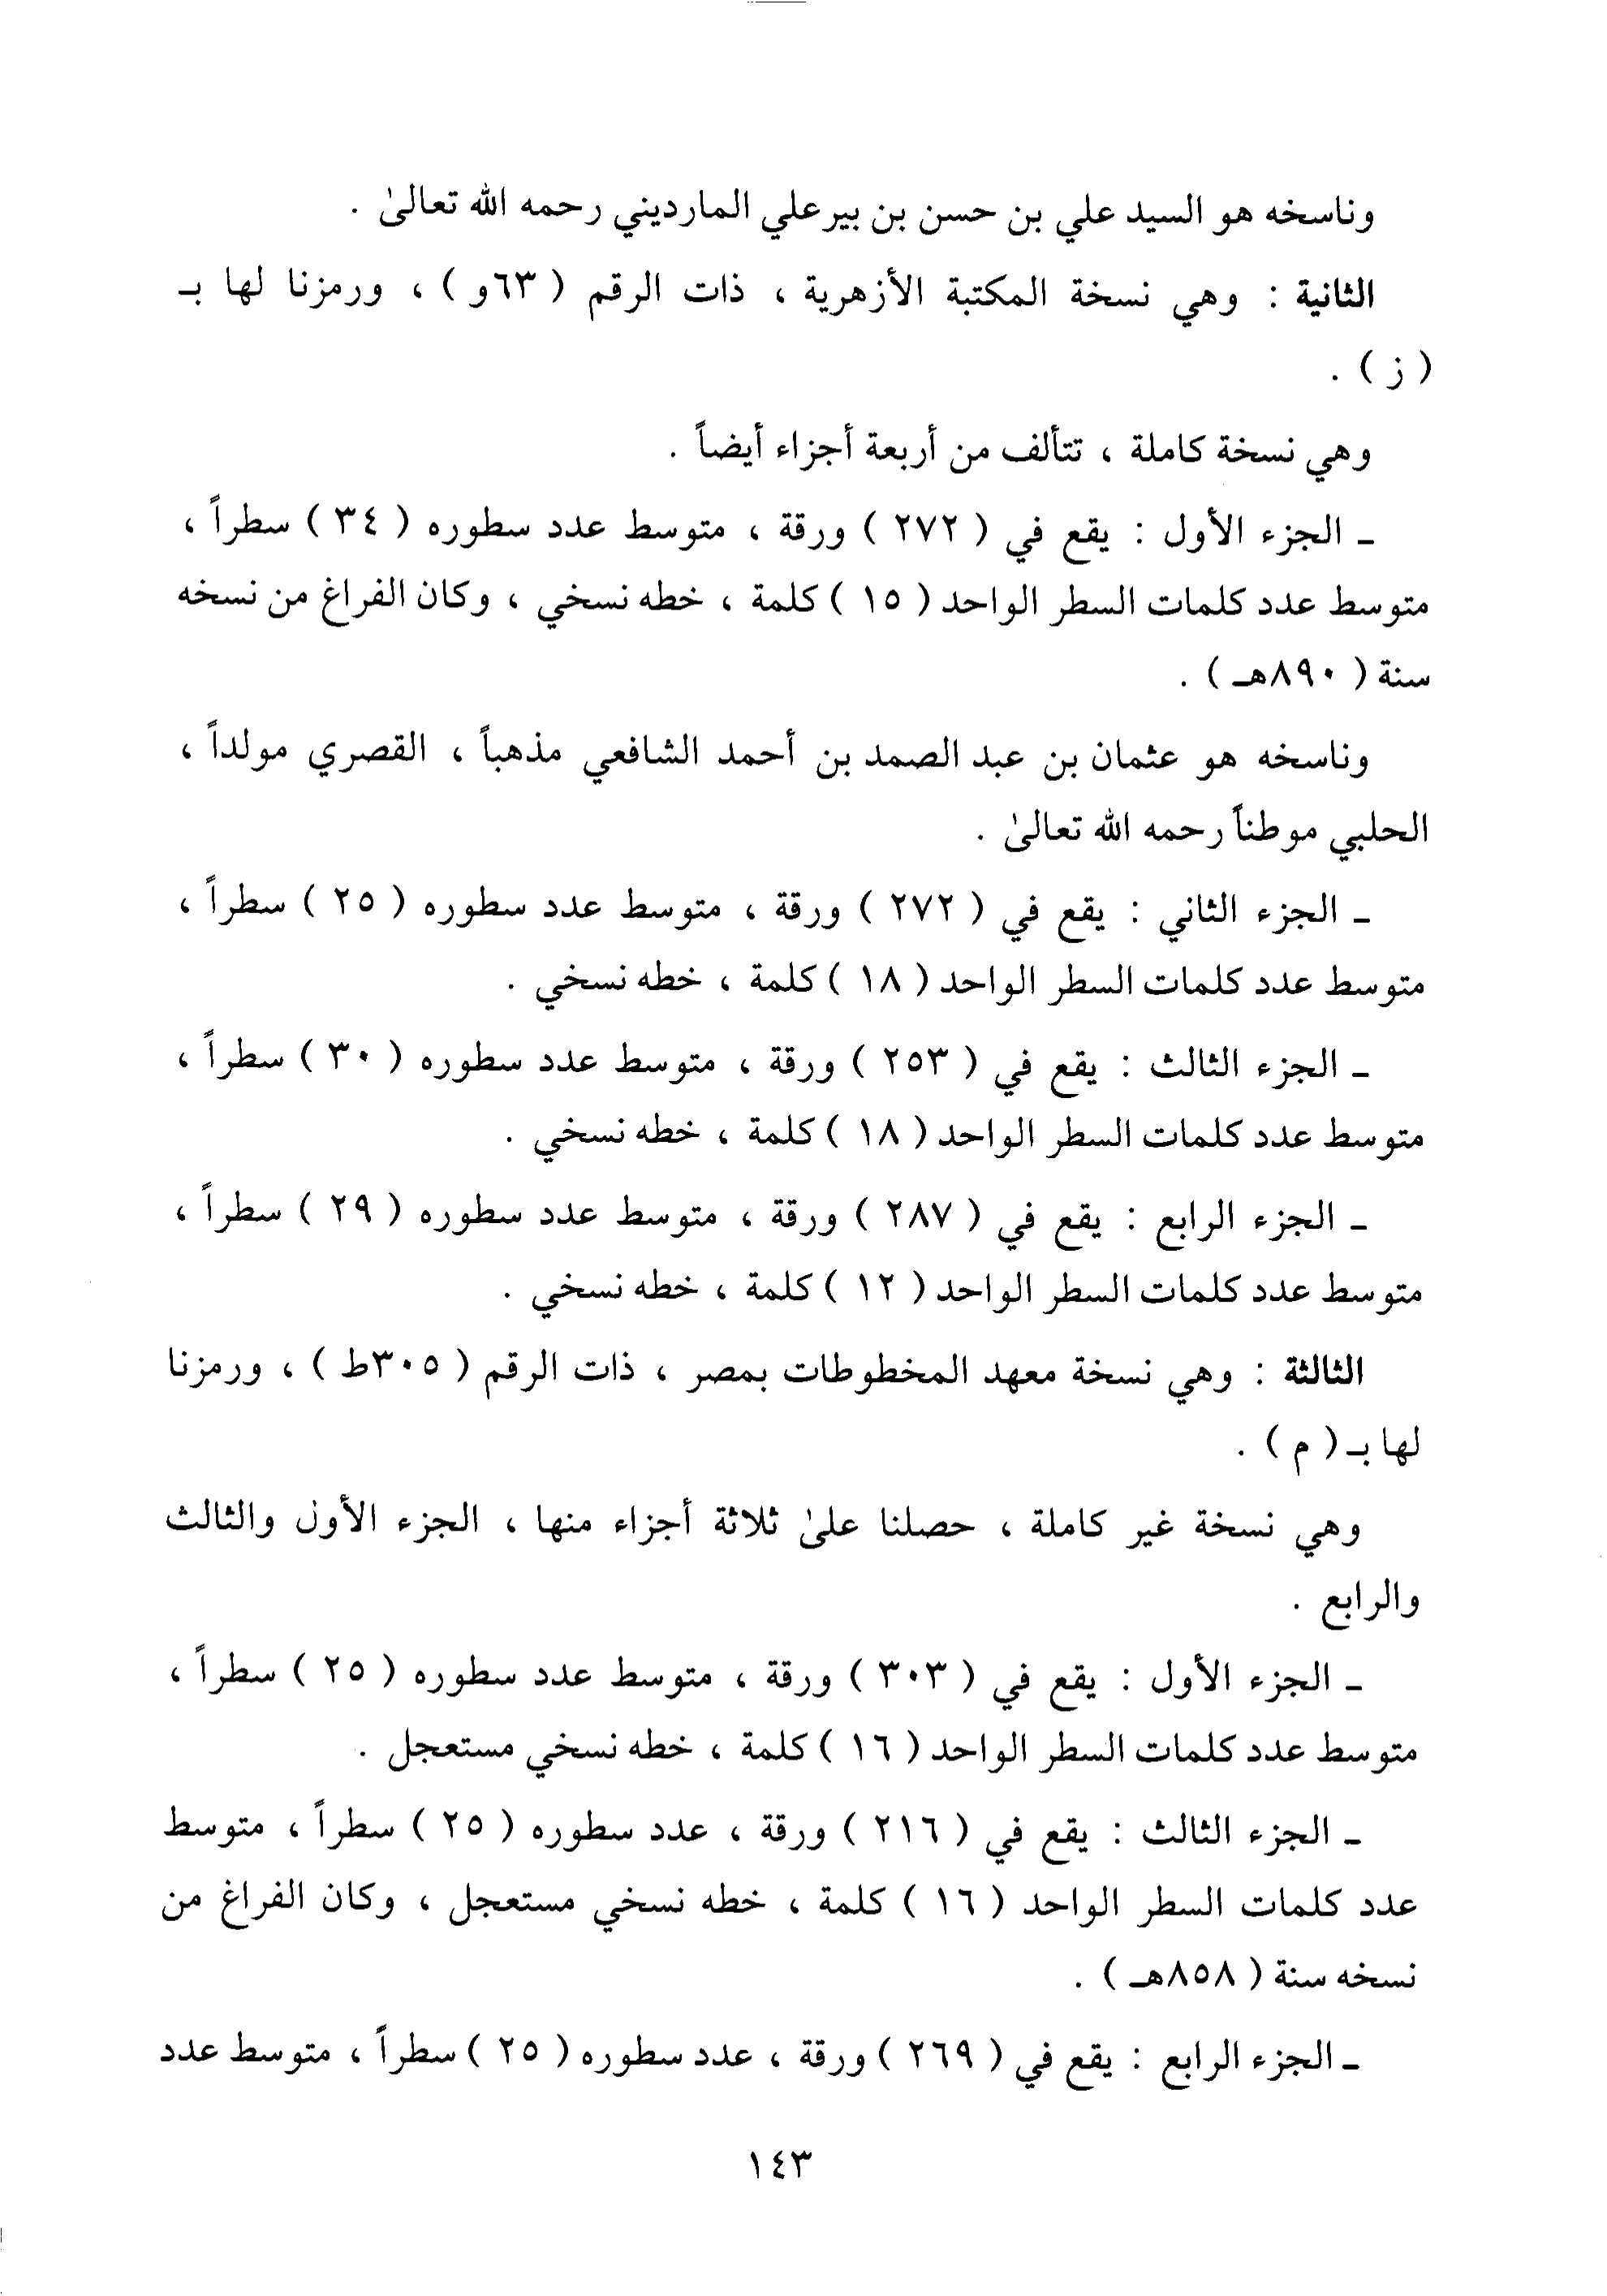 وناسخه هو السيد علي بن حسن بن بيرعلي المارديني رحمه الله تعالىٰ .
الثانية : وهي نسخة المكتبة الأزهرية ، ذات الرقم ( ٦٣و ) ، ورمزنا لها بـ
( ز ) .
وهي نسخة كاملة ، تتألف من أربعة أجزاء أيضاً .
ـ الجزء الأول : يقع في ( ٢٧٢ ) ورقة ، متوسط عدد سطوره ( ٣٤ ) سطراً ،
متوسط عدد كلمات السطر الواحد ( ١٥ ) كلمة ، خطه نسخي ، وكان الفراغ من نسخه
سنة ( ٨٩٠هـ ) .
وناسخه هو عثمان بن عبد الصمد بن أحمد الشافعي مذهباً ، القصري مولداً ،
الحلبي موطناً رحمه الله تعالىٰ .
ـ الجزء الثاني : يقع في ( ٢٧٢ ) ورقة ، متوسط عدد سطوره ( ٢٥ ) سطراً ،
متوسط عدد كلمات السطر الواحد ( ١٨ ) كلمة ، خطه نسخي .
ـ الجزء الثالث : يقع في ( ٢٥٣ ) ورقة ، متوسط عدد سطوره ( ٣٠ ) سطراً ،
متوسط عدد كلمات السطر الواحد ( ١٨ ) كلمة ، خطه نسخي .
ـ الجزء الرابع : يقع في ( ٢٨٧ ) ورقة ، متوسط عدد سطوره ( ٢٩ ) سطراً ،
متوسط عدد كلمات السطر الواحد ( ١٢ ) كلمة ، خطه نسخي .
الثالثة : وهي نسخة معهد المخطوطات بمصر ، ذات الرقم ( ٣٠٥ط ) ، ورمزنا
لها بـ ( م ) .
وهي نسخة غير كاملة ، حصلنا علىٰ ثلاثة أجزاء منها ، الجزء الأول والثالث
والرابع .
ـ الجزء الأول : يقع في ( ٣٠٣ ) ورقة ، متوسط عدد سطوره ( ٢٥ ) سطراً ،
متوسط عدد كلمات السطر الواحد ( ١٦ ) كلمة ، خطه نسخي مستعجل .
ـ الجزء الثالث : يقع في ( ٢١٦ ) ورقة ، عدد سطوره ( ٢٥ ) سطراً ، متوسط
عدد كلمات السطر الواحد ( ١٦ ) كلمة ، خطه نسخي مستعجل ، وكان الفراغ من
نسخه سنة ( ٨٥٨هـ ) .
ـ الجزء الرابع : يقع في ( ٢٦٩ ) ورقة ، عدد سطوره ( ٢٥ ) سطراً ، متوسط عدد
١٤٣